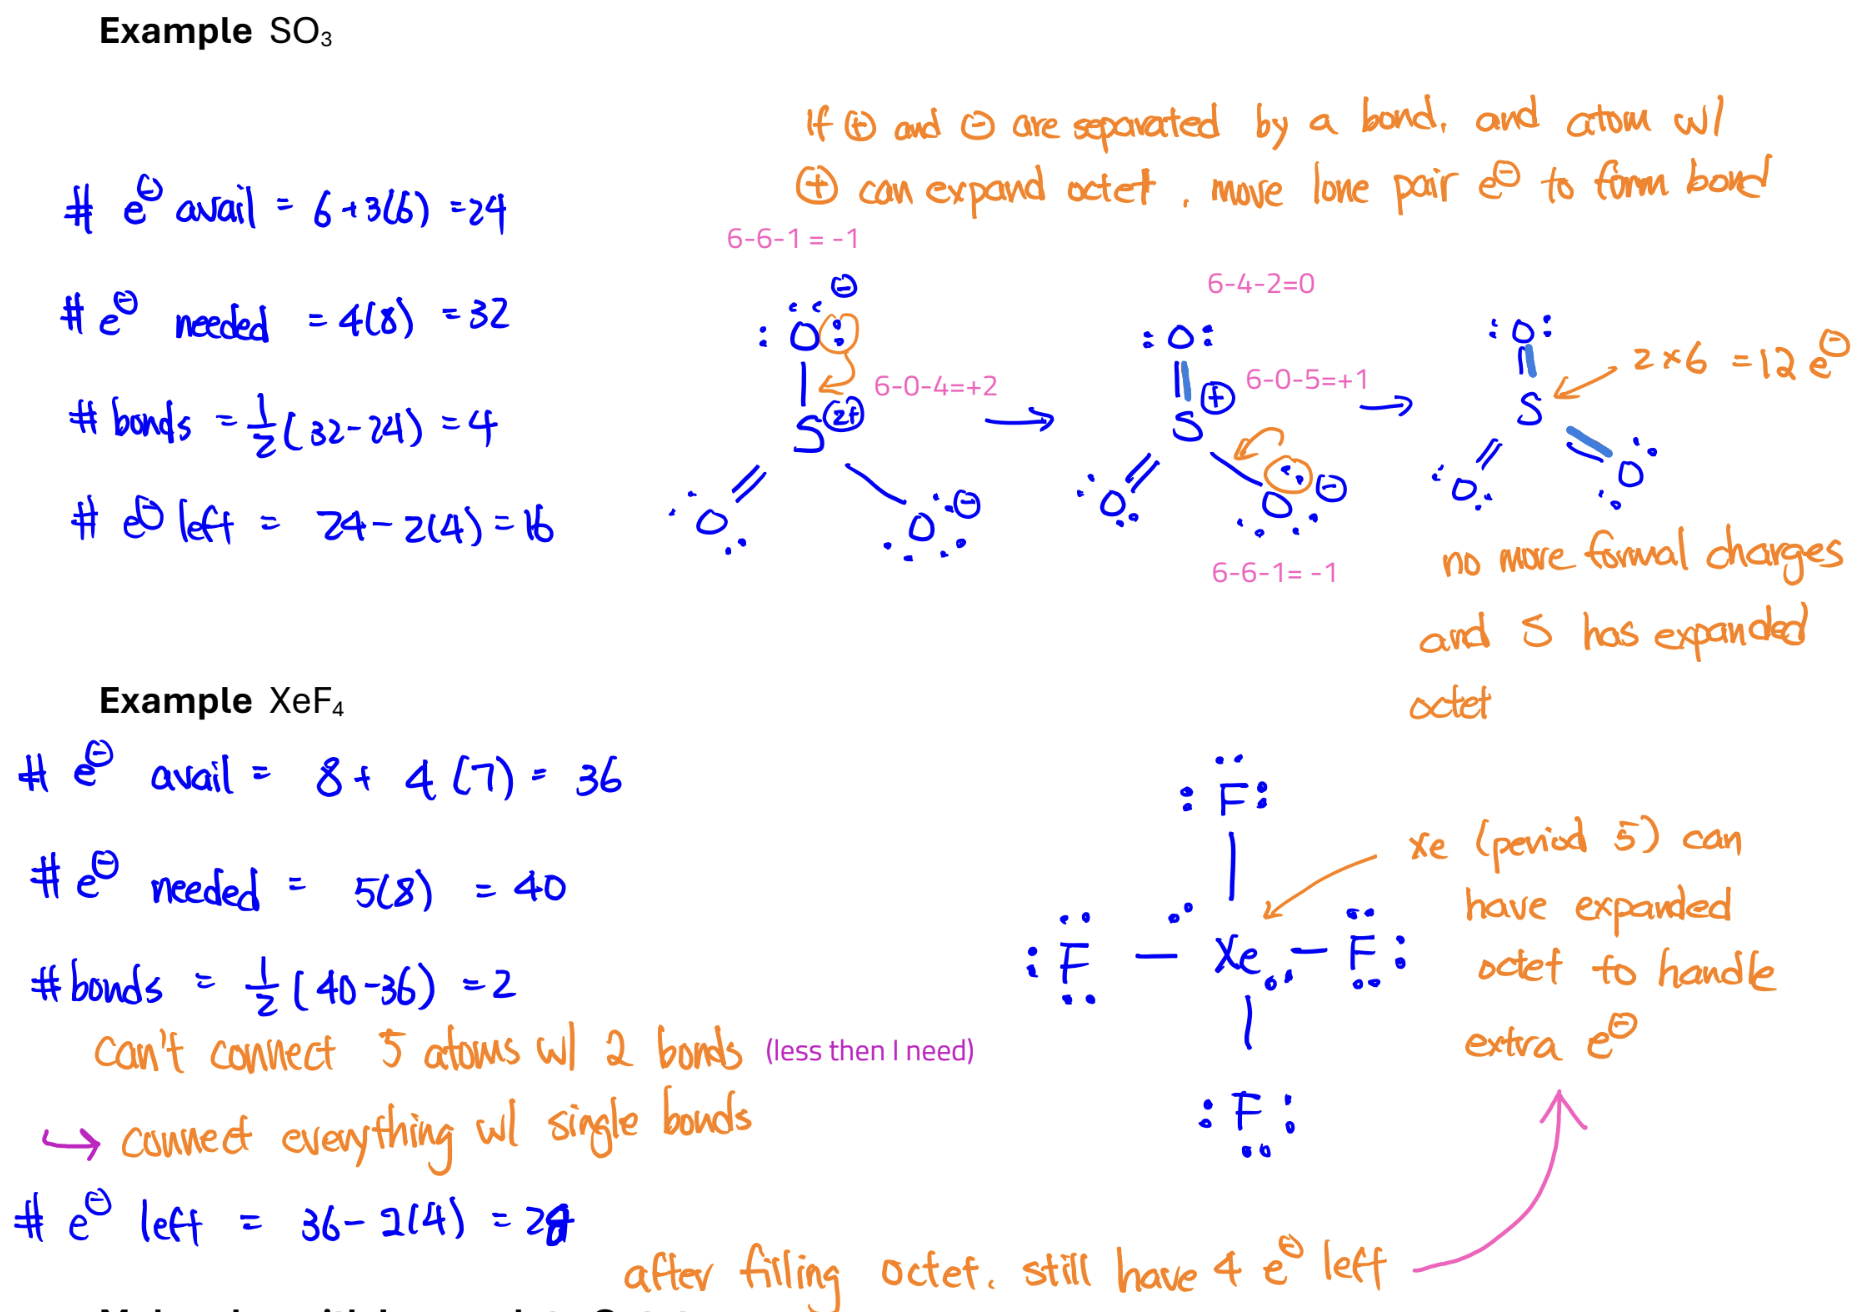 Example SO₃
If ⊕ and ⊖ are separated by a bond, and atom w/
⊕ can expand octet, move lone pair e⊖ to form bond
# e⊖ avail = 6+3(6) =24
# e⊖ needed = 4(8) = 32
# bonds = ½(32-24) = 4
# e⊖ left = 24-2(4) = 16
6-6-1 = -1
⊖
:O:
6-0-4=+2
S 2+
O
O ⊖
→
6-4-2=0
:O:
6-0-5=+1
S ⊕
O
O ⊖
6-6-1= -1
→
:O:
2×6 =12 e⊖
S
O
O
no more formal charges
and S has expanded
octet
Example XeF₄
# e⊖ avail = 8+ 4(7) = 36
# e⊖ needed = 5(8) = 40
# bonds = ½(40-36) = 2
can't connect 5 atoms w/ 2 bonds (less then I need)
↪ connect everything w/ single bonds
# e⊖ left = 36-2(4) = 28
after filling octet, still have 4 e⊖ left
:F:
:F — Xe — F:
:F:
Xe (period 5) can
have expanded
octet to handle
extra e⊖